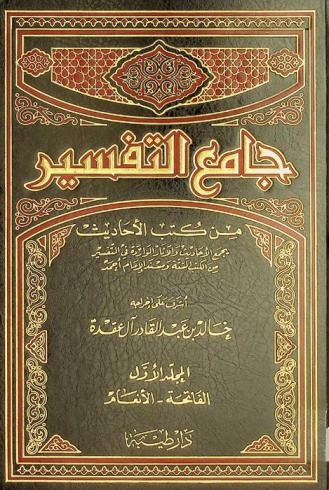 جامع التفسير
من كتب الأحاديث
يجمع الأحاديث والآثار الواردة في التفسير
من الكتب الستة ومسند الإمام أحمد
أشرف على إخراجه
خالد بن عبد القادر آل عقدة
المجلد الأول
الفاتحة - الأنعام
دار طيبة